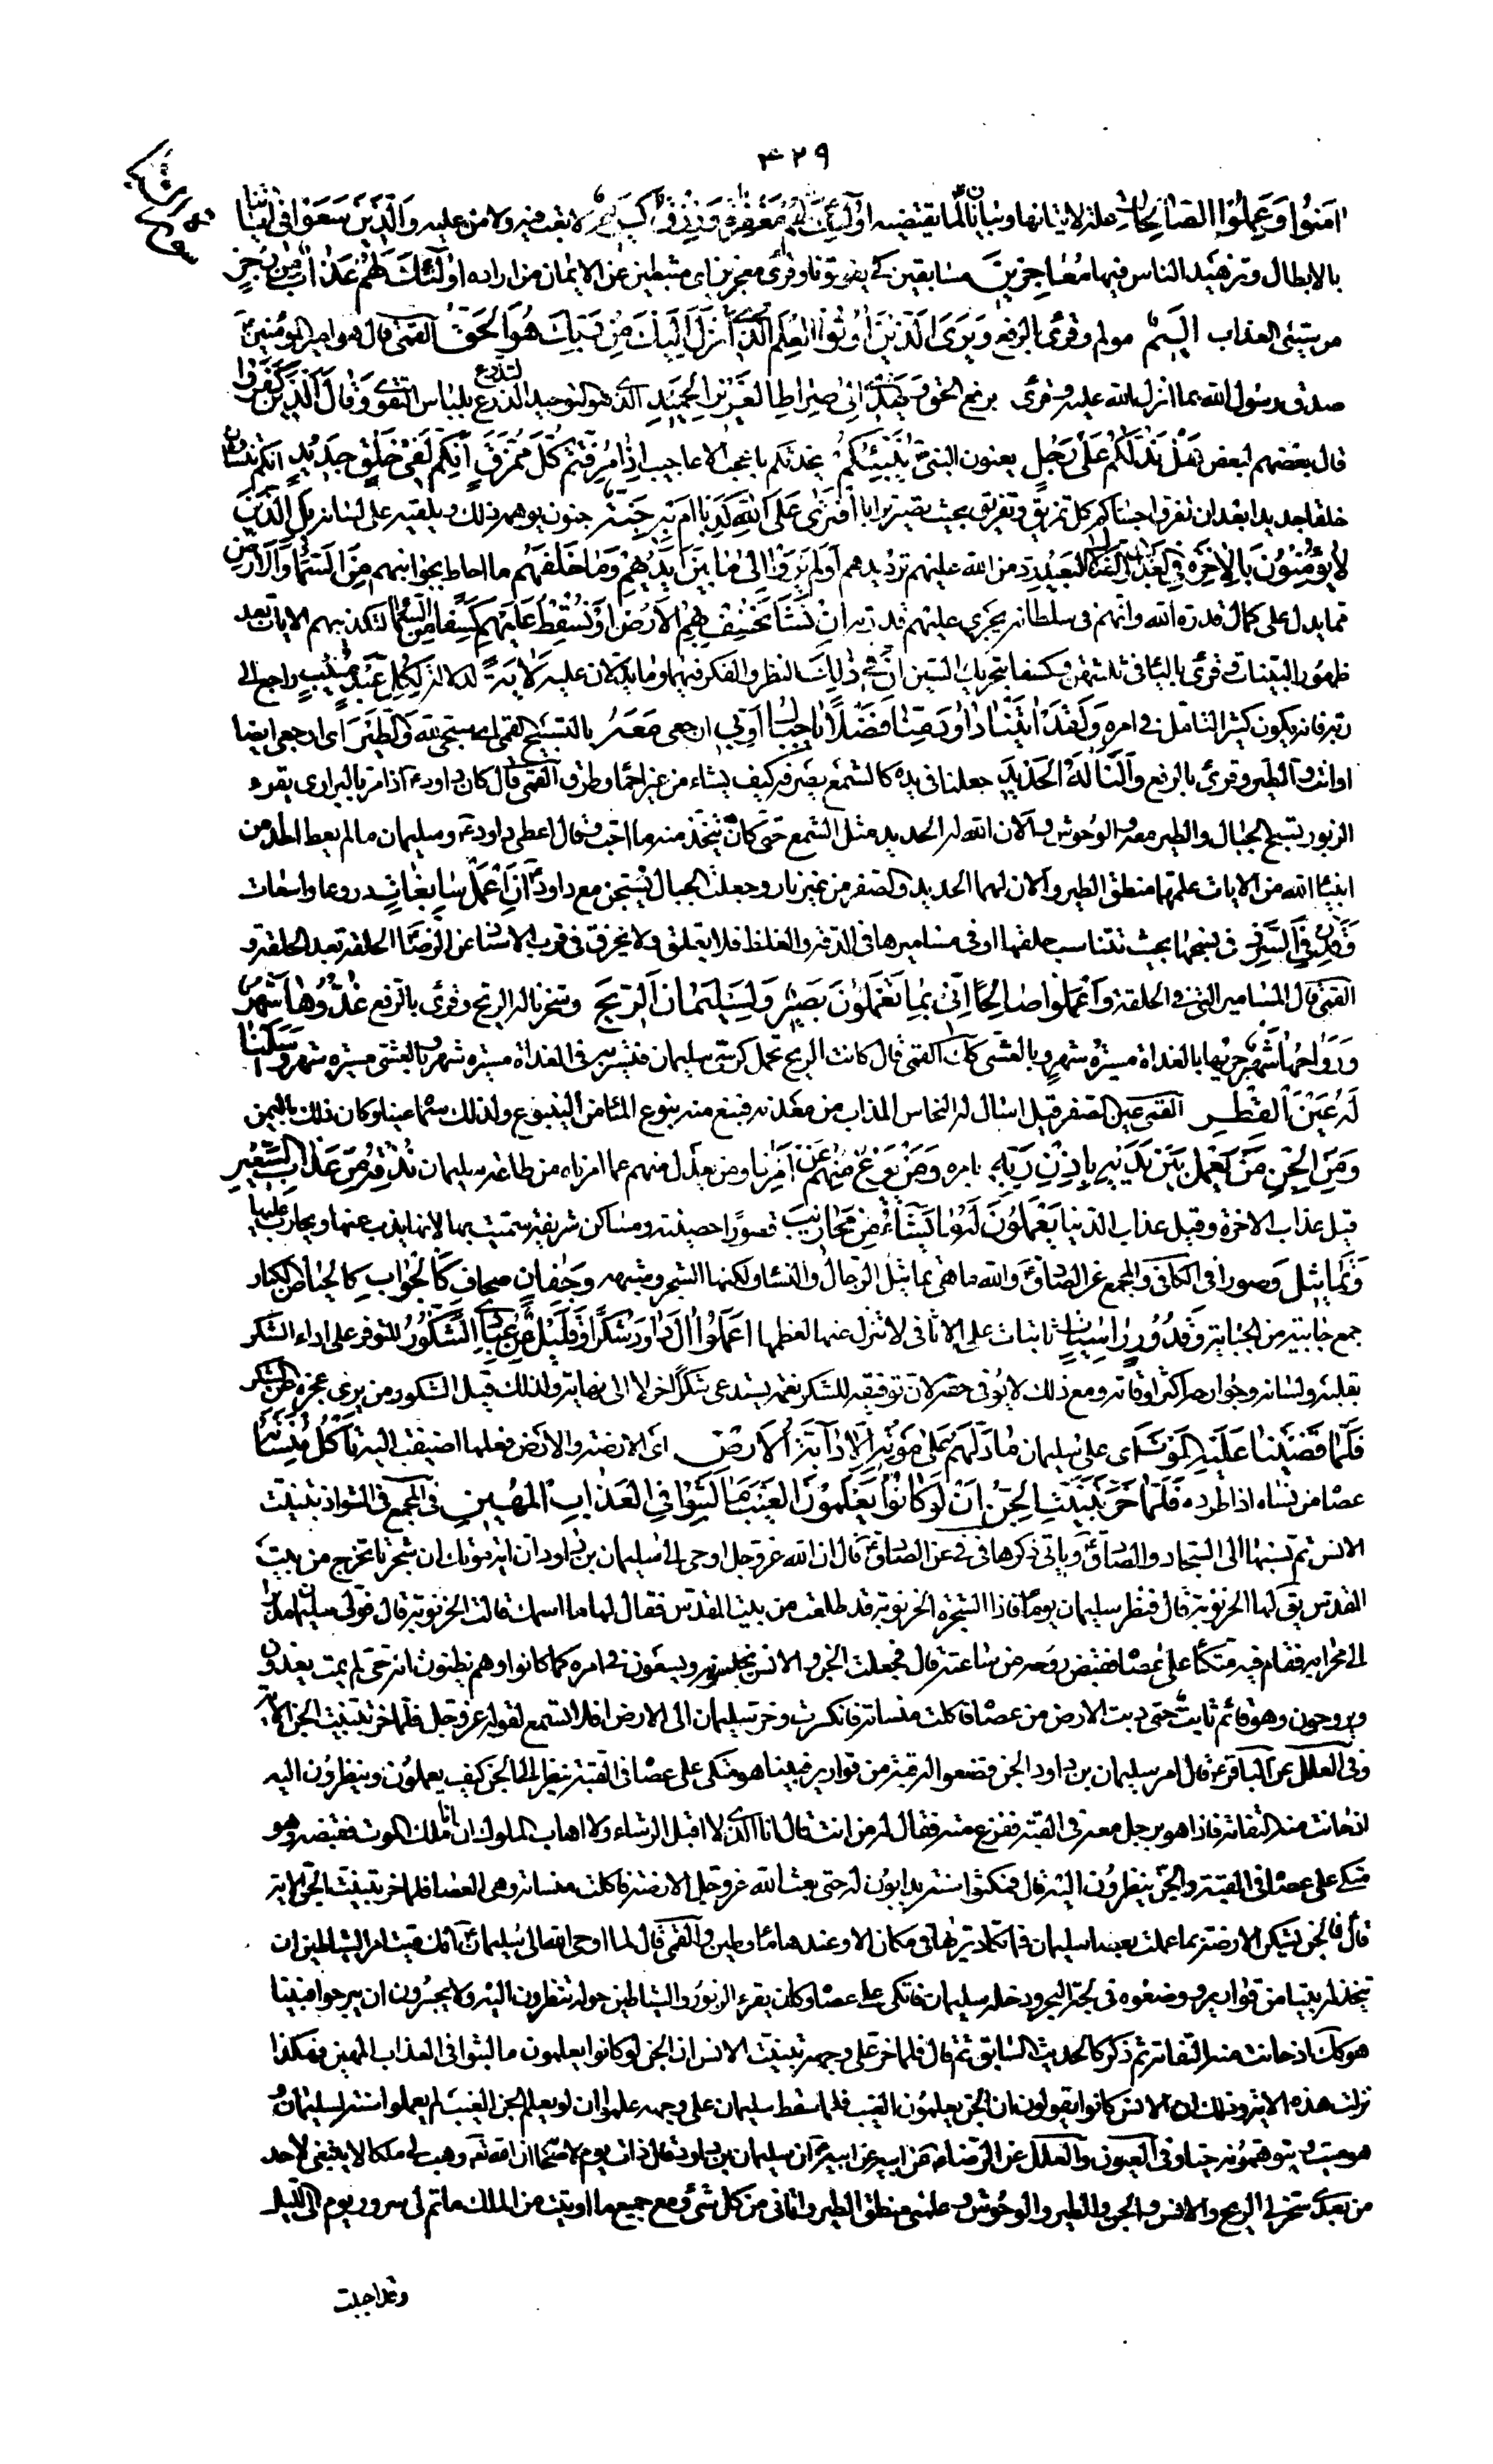 ٣٢٩
سورة سبا
امَنوُا وَعَمِلُوا الصّالِحاتِ علة لاتيانها وبيان لما يقتضيه اوُلٰئِكَ لَهُمْ مَغْفِرَةٌ وَرِزْقٌ كَريمٌ لا تعب فيه ولا من عليه وَالَّذينَ سَعَوْا في اٰياتِنا
بالابطال وتزهيد الناس فيها مُعاجِزينَ مسابقين كي يفوتونا وقرئ معجزين اى مثبطين عن الايمان من اراده اوُلٰئِكَ لَهُمْ عَذابٌ مِنْ رِجْزٍ
من سيئ العذاب اَليمٌ مولم وقرئ بالرفع وَيَرَى الَّذينَ اُوتُوا الْعِلْمَ الَّذي اُنْزِلَ اِلَيْكَ مِنْ رَبِّكَ هُوَ الْحَقَّ القمى قال هو امير المؤمنين
صدق رسول الله بما انزل الله عليه وقرئ برفع الحق وَيَهْدي اِلىٰ صِراطِ الْعَزيزِ الْحَميدِ الذى هو التوحيد التدرع بلباس التقوى وَقالَ الَّذينَ كَفَروُا
قال بعضهم لبعض هَلْ نَدُلُّكُمْ عَلىٰ رَجُلٍ يعنون النبي يُنَبِّئُكُمْ يحدثكم باعجب الاعاجيب اِذا مُزِّقْتُمْ كُلَّ مُمَزَّقٍ اِنَّكُمْ لَفي خَلْقٍ جَديدٍ انكم تنشاون
خلقا جديدا بعد ان تفرق اجسادكم كل تمزيق وتفريق بحيث تصير ترابا اَفْتَرىٰ عَلَى اللهِ كَذِباً اَمْ بِهِ جِنَّةٌ جنون يوهمه ذلك ويلقيه على لسانه بَلِ الَّذينَ
لا يُؤْمِنوُنَ بِالْاٰخِرَةِ فِي الْعَذابِ وَالضَّلالِ الْبَعيدِ رد من الله عليهم ترديدهم اَوَلَمْ يَرَوْا اِلىٰ ما بَيْنَ اَيْديهِمْ وَما خَلْفَهُمْ ما احاط بجوانبهم مِنَ السَّماءِ وَالْاَرْضِ
مما يدل على كمال قدرة الله وانهم في سلطانه يجرى عليهم قدرته اِنْ نَشَأْ نَخْسِفْ بِهِمُ الْاَرْضَ اَوْ نُسْقِطْ عَلَيْهِمْ كِسَفاً مِنَ السَّماءِ لتكذيبهم الايات بعد
ظهور البينات وقرئ بالياء في ثلثتهن وكسفا بتحريك السين اِنَّ في ذٰلِكَ النظر والفكر فيهما وما يدلان عليه لَاٰيَةً لدلالة لِكُلِّ عَبْدٍ مُنيبٍ راجع الى
ربه فانه يكون كثير التامل في امره وَلَقَدْ اٰتَيْنا داوُدَ مِنّا فَضْلاً يا جِبالُ اَوِّبي ارجعى مَعَهُ بالتسبيح القمى اى سبحي لله وَالطَّيْرَ اى ارجعي ايضا
او انت والطير وقرئ بالرفع وَاَلَنّا لَهُ الْحَديدَ جعلنا في يده كالشمع يصرفه كيف يشاء من غير احماء وطرق القمى قال كان داود ع اذا مر بالبرارى يقرء
الزبور تسبح الجبال والطير معه والوحوش والان الله له الحديد مثل الشمع حتى كان يتخذ منه ما احب وقال اعطى داود ع وسليمان ما لم يعط احد من
انبياء الله من الايات علمهما منطق الطير والان لهما الحديد والصفر من غير نار وجعلت الجبال يسبحن مع داود ع اَنِ اعْمَلْ سابِغاتٍ دروعا واسعات
وَقَدِّرْ فِي السَّرْدِ في نسجها بحيث تتناسب حلقها او في مساميرها في الدقة والغلظ فلا تعلق ولا تخرق في قرب الاسناد عن الرضا الحلقة بعد الحلقة و
القمى قال المسامير التي في الحلقة وَاعْمَلوُا صالِحاً اِنّي بِما تَعْمَلوُنَ بَصيرٌ وَلِسُلَيْمانَ الرّيحَ وسخرنا له الريح وقرئ بالرفع غُدُوُّها شَهْرٌ
وَرَواحُها شَهْرٌ جريها بالغداة مسيرة شهر وبالعشى كذلك القمى قال كانت الريح تحمل كرسى سليمان فتسير به في الغداة مسيرة شهر وبالعشي مسيرة شهر وَاَسَلْنا
لَهُ عَيْنَ الْقِطْرِ القمى عين الصفر وقيل اسال له النحاس المذاب من معدنه فنبع منه نبوع الماء من الينبوع ولذلك سماه عينا وكان ذلك باليمن
وَمِنَ الْجِنِّ مَنْ يَعْمَلُ بَيْنَ يَدَيْهِ بِاِذْنِ رَبِّهِ بامره وَمَنْ يَزِغْ مِنْهُمْ عَنْ اَمْرِنا ومن يعدل منهم عما امرناه من طاعة سليمان نُذِقْهُ مِنْ عَذابِ السَّعيرِ
قيل عذاب الاخرة وقيل عذاب الدنيا يَعْمَلوُنَ لَهُ ما يَشاءُ مِنْ مَحاريبَ قصورا حصينة ومساكن شريفة سميت بها لانها يذب عنها ويحارب عليها
وَتَماثيلَ وصورا في الكافي والمجمع عن الصادق ع والله ما هي تماثيل الرجال والنساء ولكنها الشجر وشبهه وَجِفانٍ صحاف كَالْجَوابِ كالحياض الكبار
جمع جابية من الجباية وَقُدوُرٍ راسِياتٍ ثابتات على الاثافى لا تنزل عنها لعظمها اعْمَلوُا اٰلَ داوُدَ شُكْراً وَقَليلٌ مِنْ عِبادِيَ الشَّكوُرُ المتوفر على اداء الشكر
بقلبه ولسانه وجوارحه اكثر اوقاته ومع ذلك لا يوفى حقه لان توفيقه للشكر نعمة يستدعى شكرا اخر لا الى نهاية ولذلك قيل الشكور من يرى عجزه عن الشكر
فَلَمّا قَضَيْنا عَلَيْهِ الْمَوْتَ اى على سليمان ما دَلَّهُمْ عَلىٰ مَوْتِهِ اِلّا دابَّةُ الْاَرْضِ اى الارضة والارض فعلها اضيفت اليه تَأْكُلُ مِنْسَأَتَهُ
عصاه من نسأه اذا طرده فَلَمّا خَرَّ تَبَيَّنَتِ الْجِنُّ اَنْ لَوْ كانوُا يَعْلَموُنَ الْغَيْبَ ما لَبِثوُا فِي الْعَذابِ الْمُهينِ في المجمع في الشواذ تبينت
الانس ثم نسبها الى السجاد والصادق ع وياتى ذكرها في عن الصادق ع قال ان الله عز وجل اوحى الى سليمان بن داود ان اية موتك ان شجرة تخرج من بيت
المقدس يق لها الخرنوبة قال فنظر سليمان يوما فاذا الشجرة الخرنوبة قد طلعت من بيت المقدس فقال لها ما اسمك قالت الخرنوبة قال فولى سليمان مدبرا
الى محرابه فقام فيه متكئا على عصاه فقبض روحه من ساعته قال فجعلت الجن والانس يخدمونه ويسعون في امره كما كانوا وهم يظنون انه حى لم يمت يغدون
ويروحون وهو قائم ثابت حتى دبت الارض من عصاه فاكلت منساته فانكسرت وخر سليمان الى الارض افلا تسمع لقوله عز وجل فلما خر تبينت الجن الاية
وفى العلل عن الباقر ع قال امر سليمان بن داود الجن فصنعوا له قبة من قوارير فبينا هو متكى على عصاه فى القبة ينظر الى الجن كيف يعملون وينظرون اليه
اذ حانت منه التفاتة فاذا هو برجل معه في القبة ففزع منه فقال له من انت قال انا الذى لا اقبل الرشاء ولا اهاب الملوك انا ملك الموت فقبضه وهو
متكى على عصاه في القبة والجن ينظرون اليه قال فمكثوا سنة يدابون له حتى بعث الله عز وجل الارضة فاكلت منساته وهى العصا فلما خر تبينت الجن الاية
قال فالجن تشكر الارضة بما عملت بعصا سليمان فما تكاد تريها فى مكان الا وعندها ماء وطين والقمى قال لما اوحى الله الى سليمان انك ميت امر الشياطين ان
تتخذ له بيتا من قوارير ووضعوه فى لجة البحر ودخله سليمان فاتكى على عصاه وكان يقرء الزبور والشياطين حوله ينظرون اليه ولا يجسرون ان يبرحوا فبينا
هو كك اذ حانت منه التفاتة ثم ذكر كالحديث السابق ثم قال فلما خر على وجهه تبينت الانس ان الجن لو كانوا يعلمون ما لبثوا فى العذاب المهين فهكذا
نزلت هذه الاية وذلك ان الانس كانوا يقولون ان الجن يعلمون الغيب فلما سقط سليمان على وجهه علموا ان لو يعلم الجن الغيب لم يعملوا سنة لسليمان و
هو ميت ويتوهمونه حيا وفى العيون والعلل عن الرضا ع عن ابيه عن ابيه ع ان سليمان بن داود قال ذات يوم لاصحابه ان الله تعالى وهب لى ملكا لا ينبغى لاحد
من بعدى سخر لى الريح والانس والجن والطير والوحوش وعلمنى منطق الطير واتانى من كل شئ ومع جميع ما اوتيت من الملك ما تم لى سرور يوم الى الليل
وقد احببت